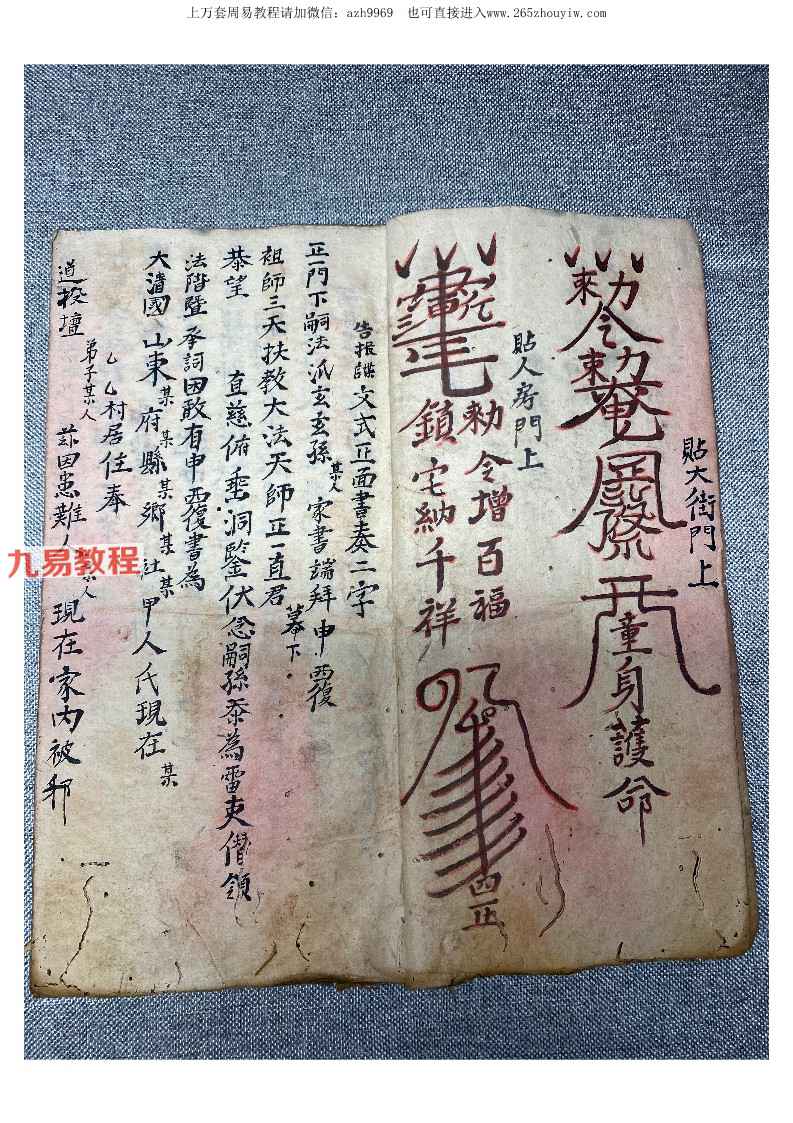 上万套周易教程请加微信：azh9969 也可直接进入www.265zhouyiw.com
貼大街門上
勅令
童身護命
貼人房門上
勅令增百福
鎮宅納千祥
四正
告报牒文式正面書奏二字
正一門下嗣法派玄玄孫某人 家書端拜申西復
祖師三天扶教大法天師正一直君 幕下
恭望 直慈俯垂洞鑒伏念嗣孫忝為雷吏僭領
法階暨承詞因敢有申西復書為
大清國山東某府某縣某鄉某社某甲人氏現在某
乙乙村居住奉
道投壇弟子某人 兹因患難人某人現在家内被邪
九易教程